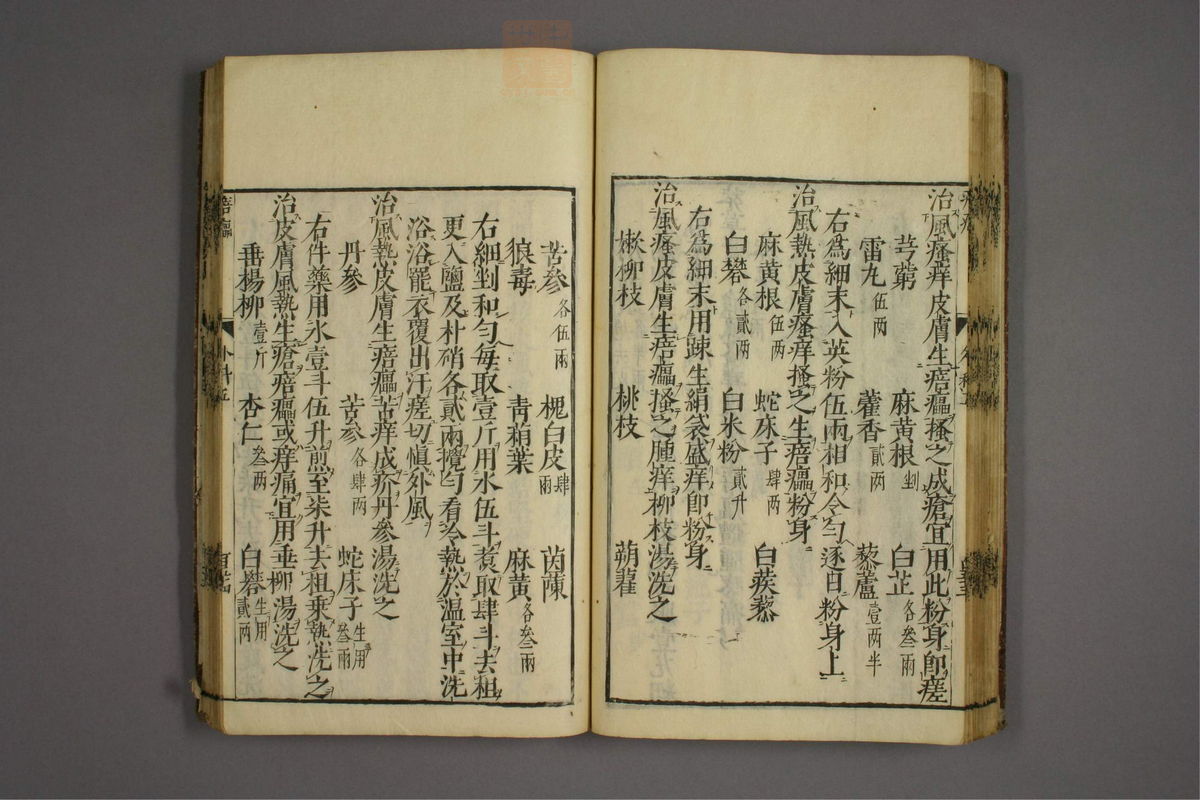 治風瘙痒皮膚生㾦㿔搔之成瘡宜用此粉身即瘥
芎藭 麻黄根剉 白芷各叄兩
雷丸伍兩 藿香貳兩 藜蘆壹兩半
右爲細末入英粉伍兩相和令勻逐日粉身上
治風熱皮膚瘙痒搔之生㾦㿔粉身
麻黄根伍兩 蛇床子肆兩 白蒺藜
白礬各貳兩 白米粉貳升
右爲細末用踈生絹袋盛痒即粉身
治風瘙皮膚生㾦㿔搔之腫痒柳枝湯洗之
嫩柳枝 桃枝 蒴藋
苦參各伍兩 槐白皮肆兩 茵蔯
狼毒 青葙葉 麻黄各叄兩
右細剉和勻每取壹斤用水伍斗煮取肆斗去柤
更入鹽及朴硝各貳兩攪勻看冷熱於温室中洗
浴浴罷衣覆出汗瘥切慎外風
治風熱皮膚生㾦㿔苦痒成疥丹參湯洗之
丹參 苦參各肆兩 蛇床子生用叄兩
右件藥用水壹斗伍升煎至柒升去柤乗熱洗之
治皮膚風熱生瘡㾦㿔或痒痛宜用垂柳湯洗之
垂楊柳壹斤 杏仁叄兩 白礬生用貳兩